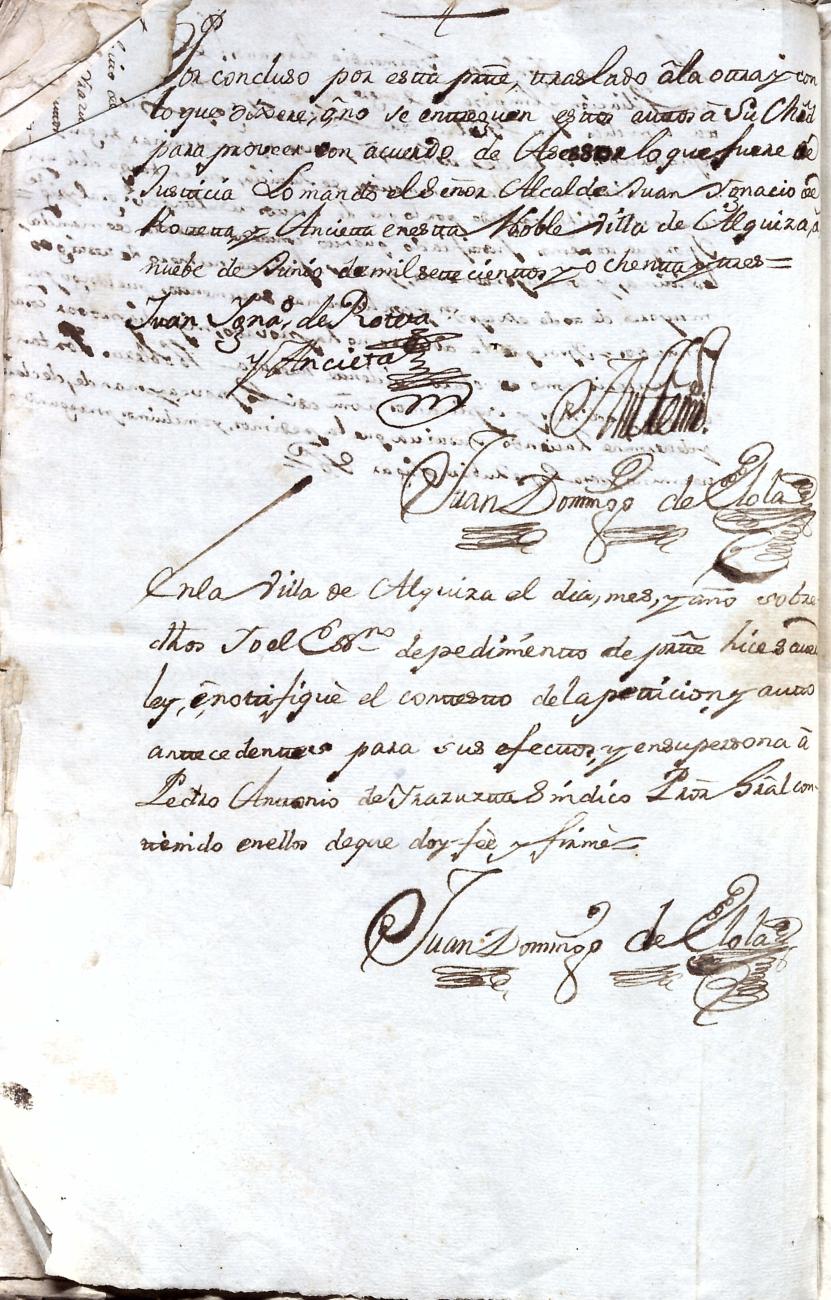 Por concluso por esta pte, traslado â la otra y con
lo que dixere, ô no se entreguen estos autos â Su
para proveer con acuerdo de Asessor lo que fuere de
Justicia Lo mandó el Señor Alcalde Juan Ygnacio de
Roteta, y Ancieta en esta Noble Villa de Alquiza, â
nuebe de Junio de mil setecientos y ochenta y tres=
Juan Ygnaº de Roteta
y Ancieta
Antemi.
Juan Domingo de Elola
En la Villa de Alquiza el dia, mes, y año sobre
dhos Yo el Essno de pedimento de pte hice saver
ley, ê notifiquè el contesto de la peticion, y auto
antecedentes para sus efectos, y en su persona â
Pedro Antonio de Yrazuzta Síndico Pror Gral con-
tenido en ellos de que doy feè y firmè=
Juan Domingo de Elola